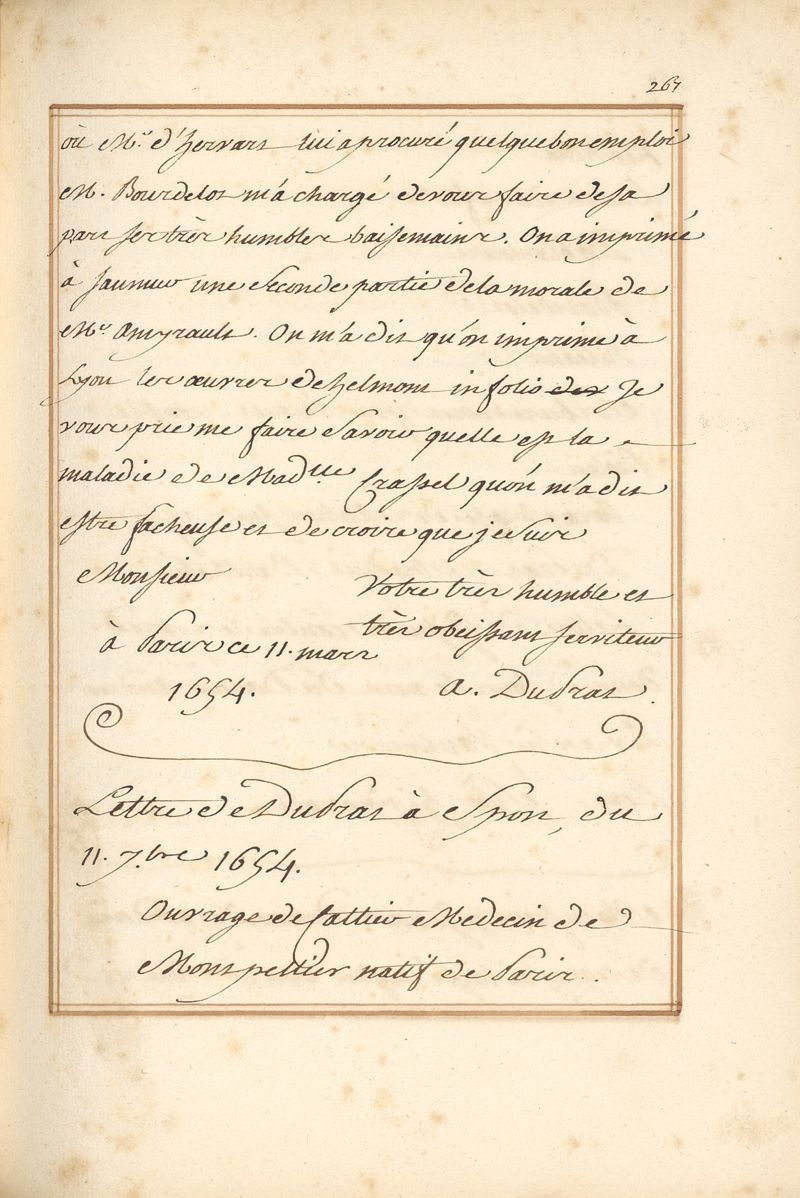 267
où Mr. d'Hervart lui a procuré quelque bon emploi
M. Bourdelot m'a chargé de vous faire de sa
part ses très humbles baisemains. On a imprimé
à Saumur une seconde partie de la morale de
Mr. Amyrault. On m'a dit qu'on imprime à
Lyon les œuvres de helmont in folio des Je
vous prie me faire savoir quelle est la
maladie de Madlle Crassel qu'on m'a dit
estre facheuse et de croire que je suis
Monsieur
Votre très humble et
très obeissant serviteur
à Paris ce 11. mars
1654.
a. DuPrat.
Lettre de DuPrat à Spon, du
11. 7.bre 1654.
Ouvrage de Cattier Medecin de
Montpellier natif de Paris.